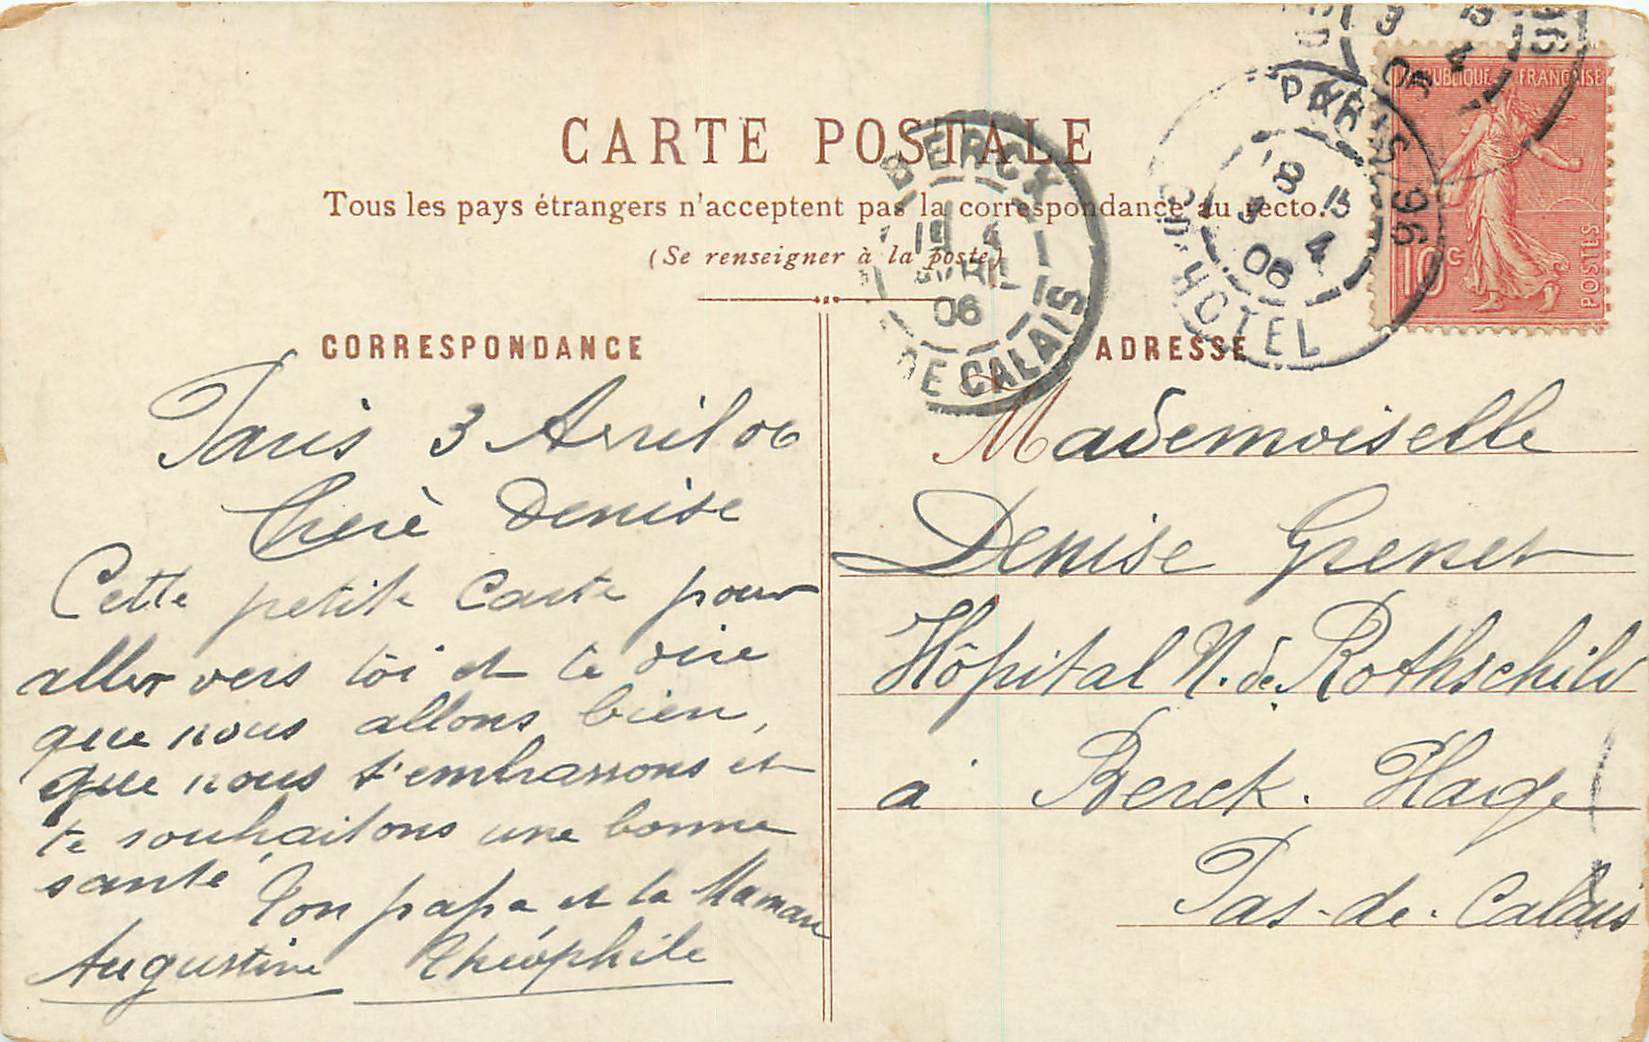 CARTE POSTALE
Tous les pays étrangers n'acceptent pas la correspondance au recto.
(Se renseigner à la poste)
CORRESPONDANCE
Paris 3 Avril 06
Cherè Denise
Cette petite Carte pour
aller vers toi et te dire
que nous allons bien,
que nous t'embrassons et
te souhaitons une bonne
santé
Ton papa et ta Maman
Augustine Théophile
ADRESSE
Mademoiselle
Denise Grenet
Hôpital N. de Rothschild
à Berck. Plage
Pas-de-Calais
BERCK
4
AVRIL
06
DE CALAIS
PARIS 96
8 15
3 4
06
HOTEL
3 15
4
06
96
REPUBLIQUE FRANÇAISE
10c
POSTES